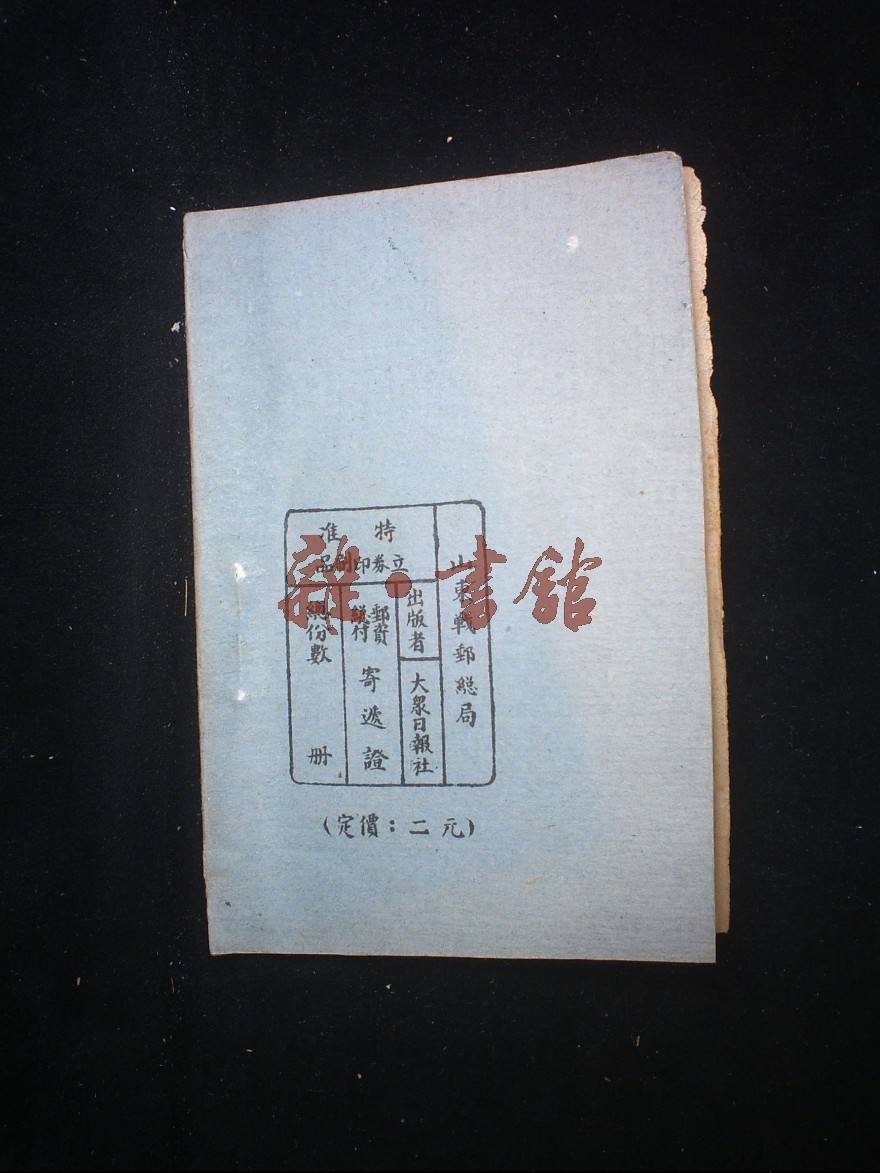 山東戰郵総局
特准
立券印刷品
出版者
大眾日報社
郵資
総付
寄遞證
總份數　冊
(定價：二元)
雜·書館